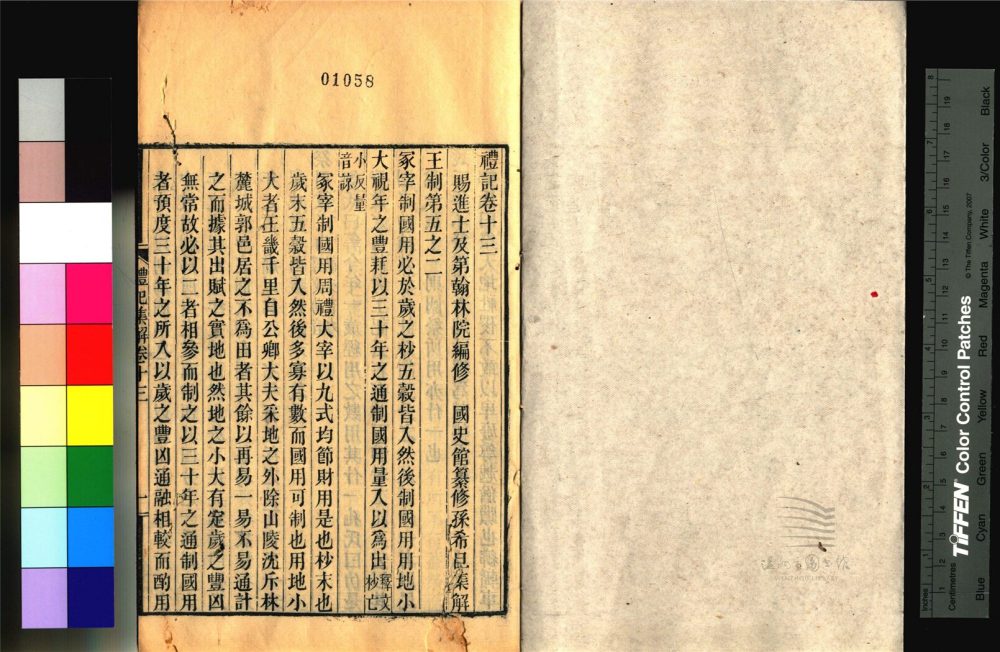 01058
禮記卷十三
賜進士及第翰林院編修 國史館纂修孫希旦集解
王制第五之二
冢宰制國用必於歲之杪五穀皆入然後制國用用地小
大視年之豐耗以三十年之通制國用量入以為出釋文杪亡
小反量音諒
冢宰制國用周禮大宰以九式均節財用是也杪末也
歲末五穀皆入然後多寡有數而國用可制也用地小
大者王畿千里自公卿大夫采地之外除山陵沈斥林
麓城郭邑居之不為田者其餘以再易一易不易通計
之而據其出賦之實地也然地之小大有定歲之豐凶
無常故必以二者相參而制之以三十年之通制國用
者預度三十年之所入以歲之豐凶通融相較而酌用
禮記集解卷十三
一
Inches
Centimetres
TIFFEN Color Control Patches
© The Tiffen Company, 2007
Blue
Cyan
Green
Yellow
Red
Magenta
White
3/Color
Black